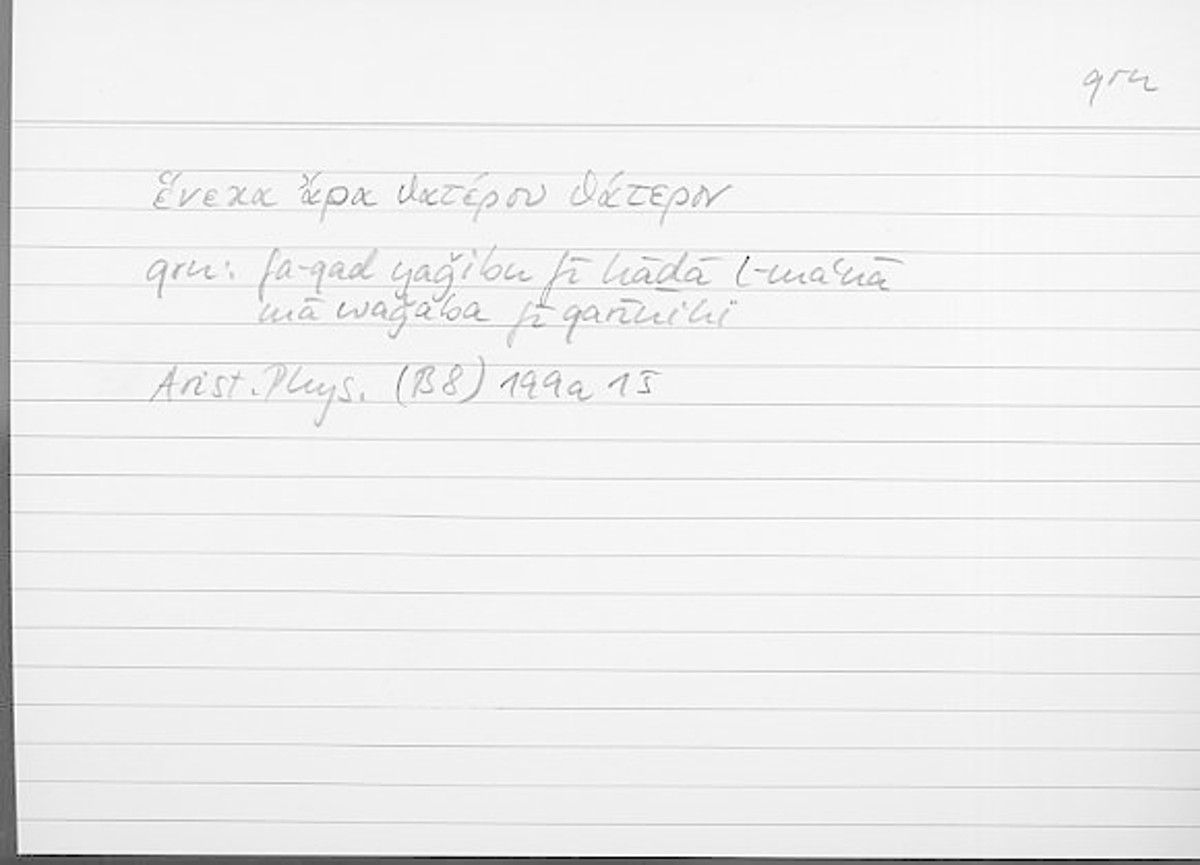 qrn
ἕνεκα ἄρα θατέρου θάτερον
qrn: fa-qad yaǧibu fī hāḏā l-maʿnā
mā waǧaba fī qarīnihī
Arist. Phys. (B8) 199a 15